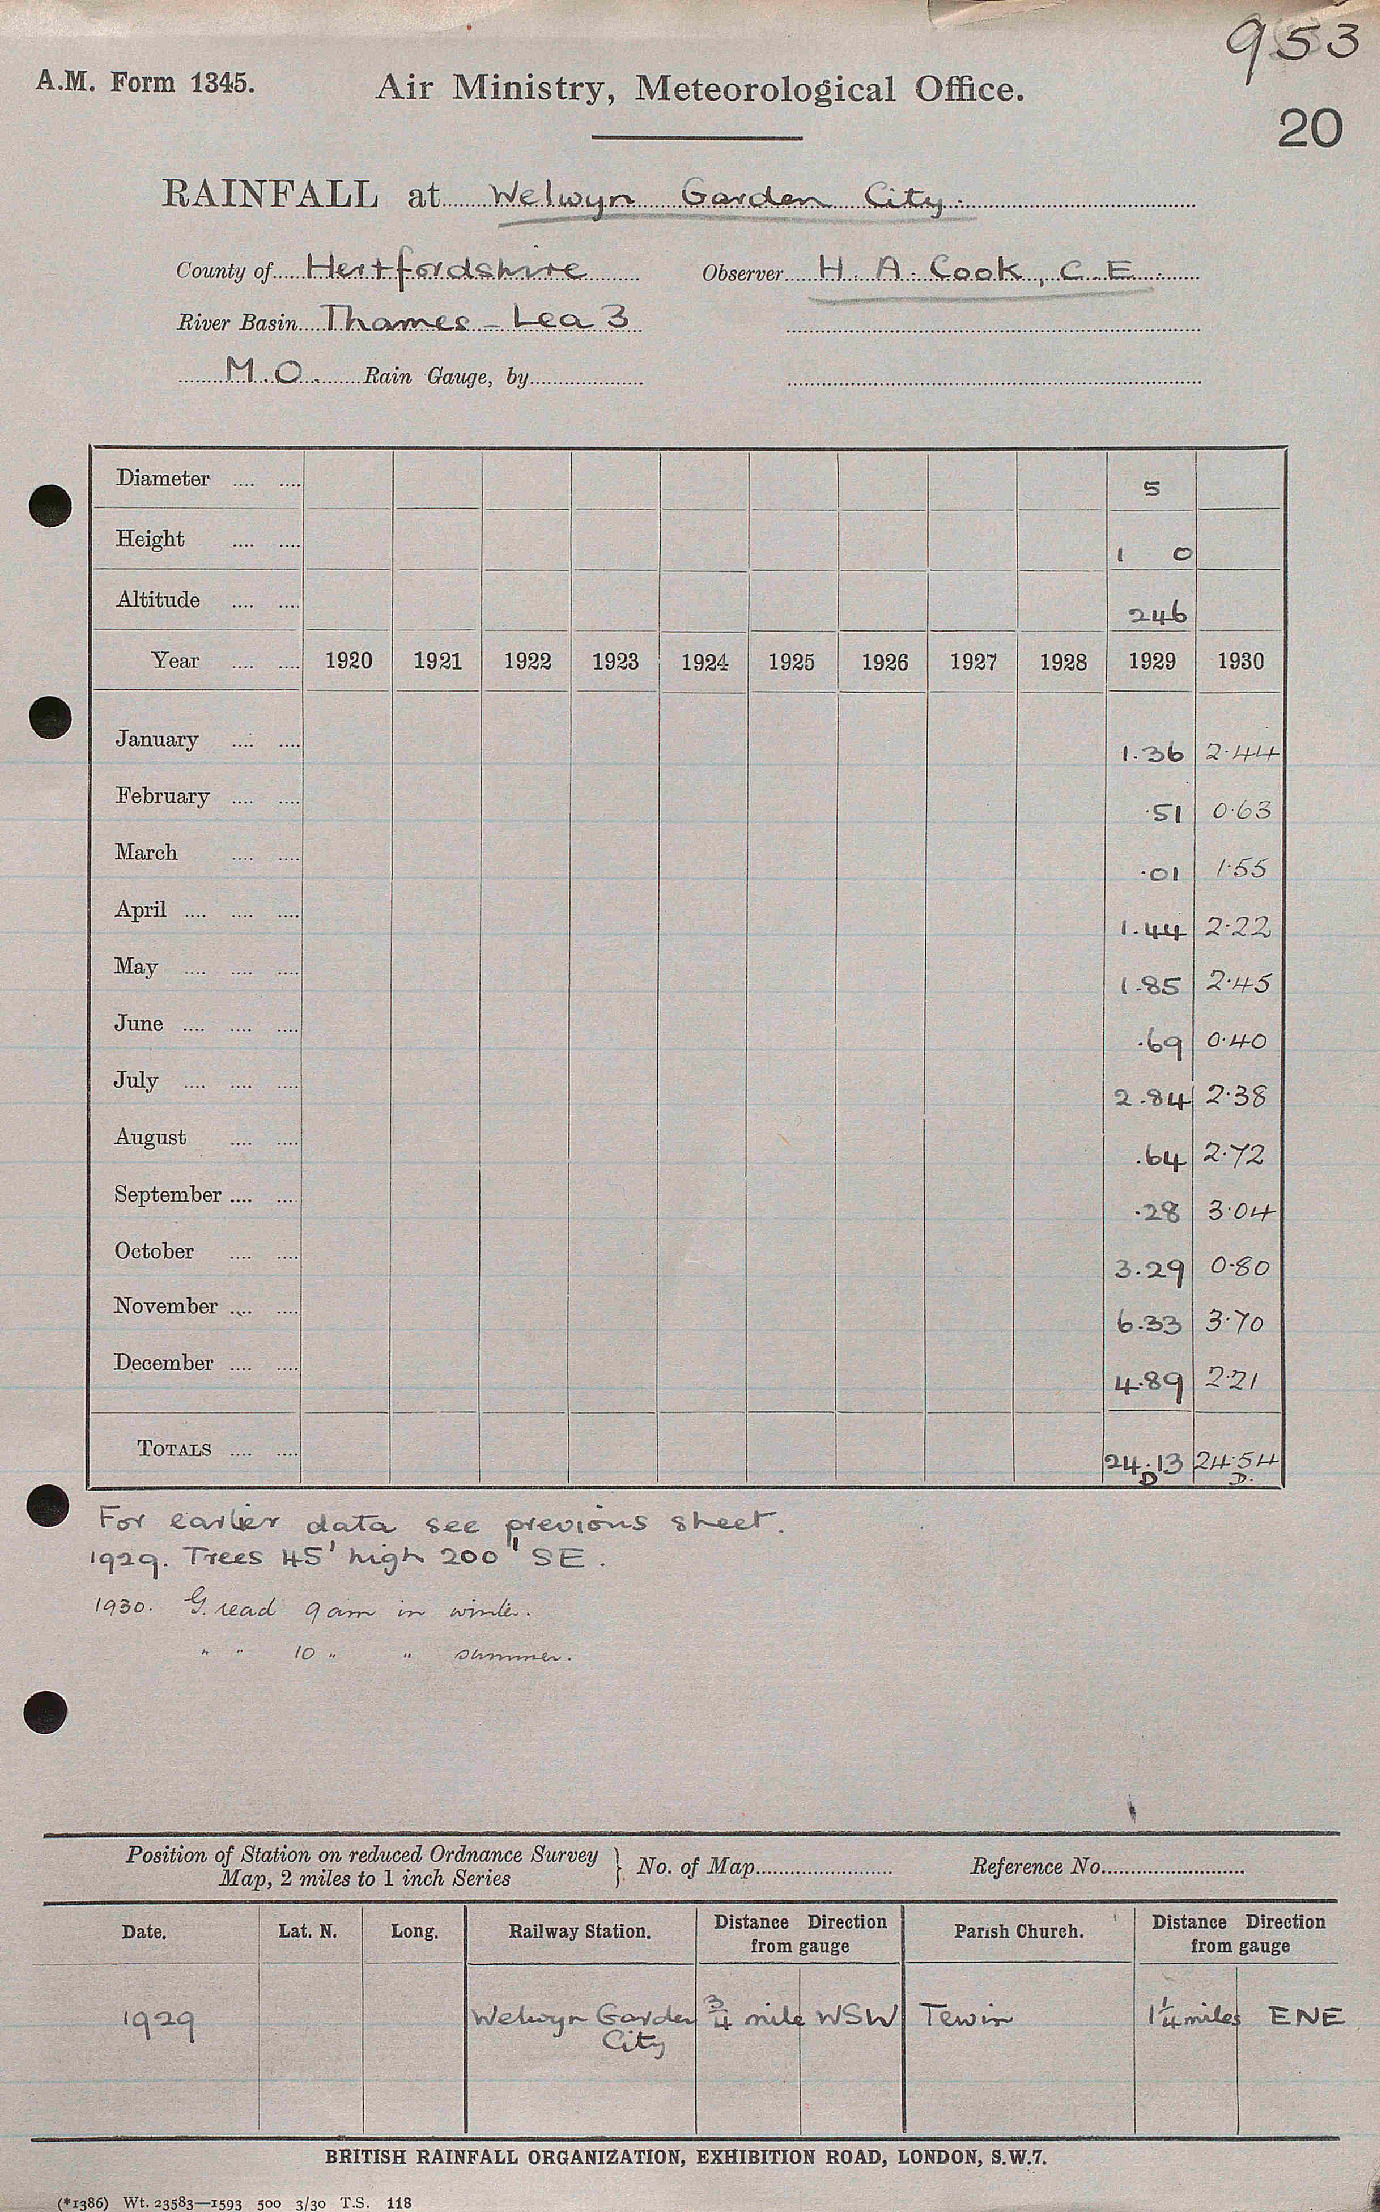 953
A.M. Form 1345. Air Ministry, Meteorological Office.
20
RAINFALL at Welwyn Garden City.
County of Hertfordshire Observer H. A. Cook, C.E.
River Basin Thames - Lea 3
M.O. Rain Gauge, by
Diameter .... .... 5
Height .... .... 1 0
Altitude .... .... 246
Year .... .... 1920 1921 1922 1923 1924 1925 1926 1927 1928 1929 1930
January .... .... 1.36 2.44
February .... .... .51 0.63
March .... .... .01 1.55
April .... .... .... 1.44 2.22
May .... .... .... 1.85 2.45
June .... .... .... .69 0.40
July .... .... .... 2.84 2.38
August .... .... .64 2.72
September .... .... .28 3.04
October .... .... 3.29 0.80
November .... .... 6.33 3.70
December .... .... 4.89 2.21
TOTALS .... .... 24.13 24.54
D D.
For earlier data see previous sheet.
1929. Trees 45' high 200' SE.
1930. G. read 9 am in winter.
" " 10 " " summer.
Position of Station on reduced Ordnance Survey
Map, 2 miles to 1 inch Series } No. of Map Reference No.
Date. Lat. N. Long. Railway Station. Distance Direction from gauge Parish Church. Distance Direction from gauge
1929 Welwyn Garden City 3/4 mile WSW Tewin 1 1/4 miles ENE
BRITISH RAINFALL ORGANIZATION, EXHIBITION ROAD, LONDON, S.W.7.
(*1386) Wt. 23583—1593 500 3/30 T.S. 118